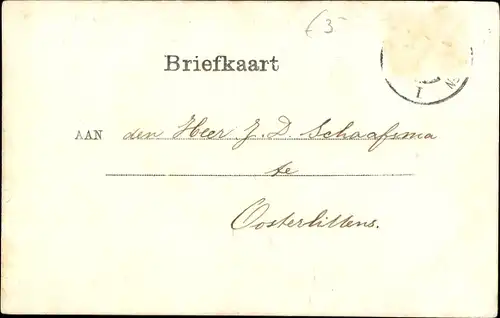 f 3-
Briefkaart
AAN den Heer J. D. Schaafsma
te
Oosterlittens.